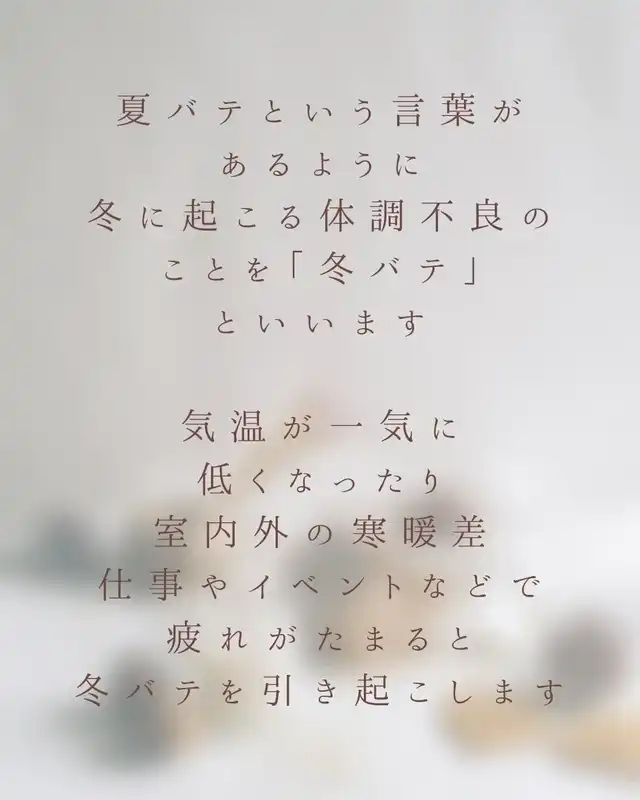 夏バテという言葉が
あるように
冬に起こる体調不良の
ことを「冬バテ」
といいます
気温が一気に
低くなったり
室内外の寒暖差
仕事やイベントなどで
疲れがたまると
冬バテを引き起こします